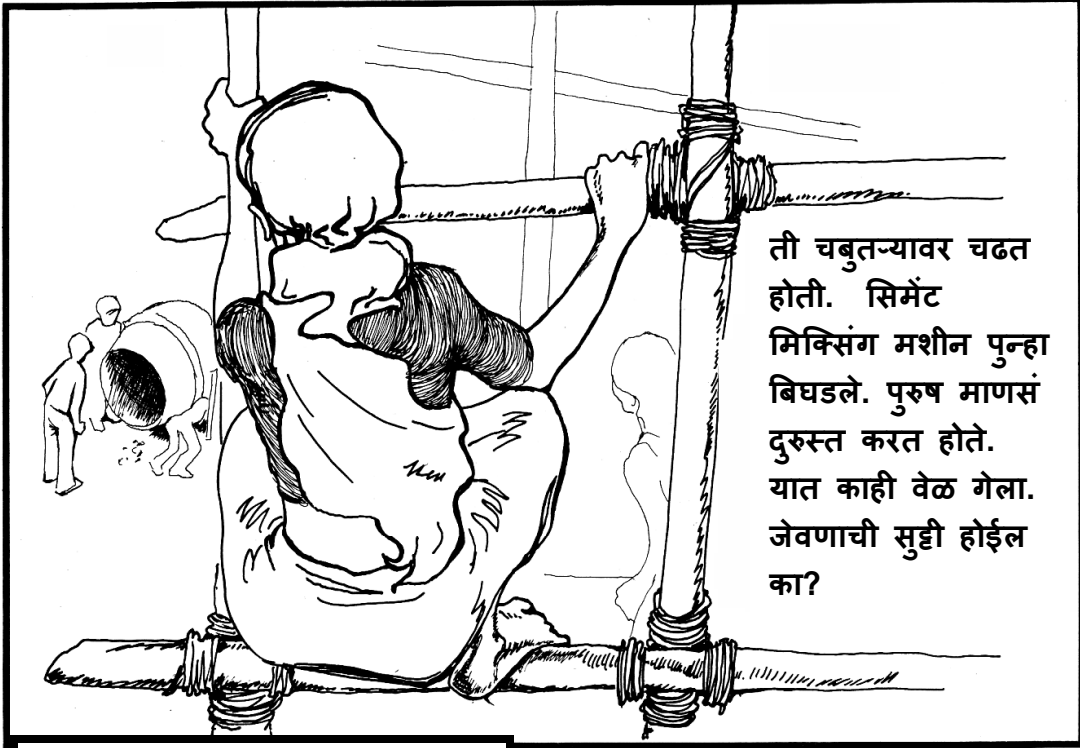 ती चबुतऱ्यावर चढत
होती. सिमेंट
मिक्सिंग मशीन पुन्हा
बिघडले. पुरुष माणसं
दुरुस्त करत होते.
यात काही वेळ गेला.
जेवणाची सुट्टी होईल
का?